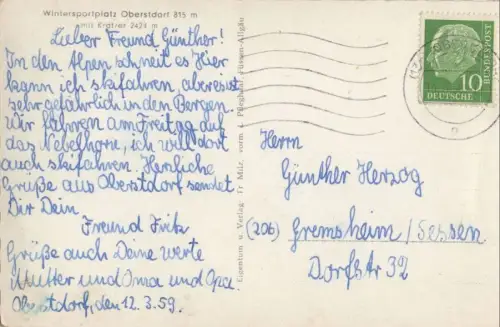 Wintersportplatz Oberstdorf 815 m
mit Kratzer 2424 m
Lieber Freund Günther!
In den Alpen schneit es Hier
kann ich skifahren, aber es ist
sehr gefährlich in den Bergen
Wir fahren am Freitag auf
das Nebelhorn, ich will dort
auch skifahren. Herzliche
Grüße aus Oberstdorf sendet
Dir Dein
Freund Fritz
Grüße auch Deine werte
Mutter und Oma und Opa.
Oberstdorf, den 12.3.59.
Eigentum u Verlag: Fr Milz, vorm. Füssen-Allgäu
DEUTSCHE BUNDESPOST
10
Herrn
Günther Herzog
(20b) Gremsheim/Sessen
Dorfstr 32